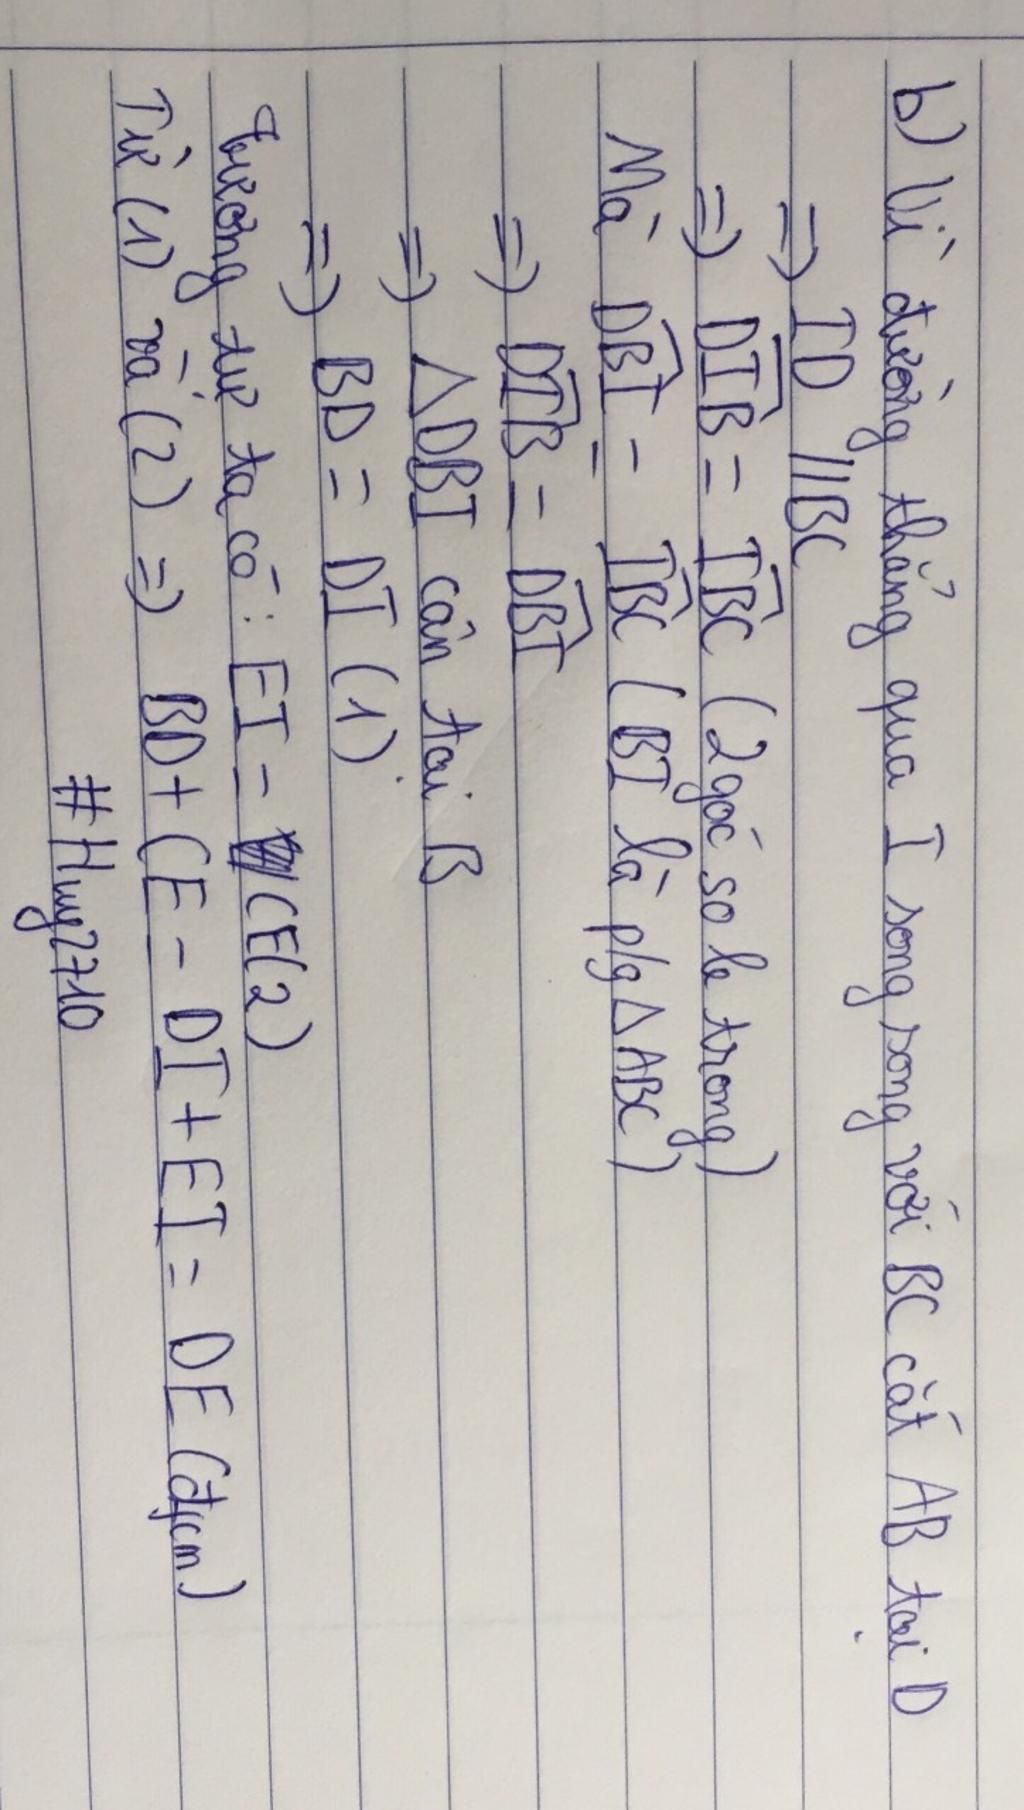 b) Vì đường thẳng qua I song song với BC cắt AB tại D
=> ID // BC
=> DIB̂ = IBĈ (2 góc so le trong)
Mà DBÎ = IBĈ (BI là p/g △ABC)
=> DIB̂ = DBÎ
=> △DBI cân tại B
=> BD = DI (1)
Tương tự ta có: EI = CE (2)
Từ (1) và (2) => BD + CE = DI + EI = DE (đpcm)
#Huy2710